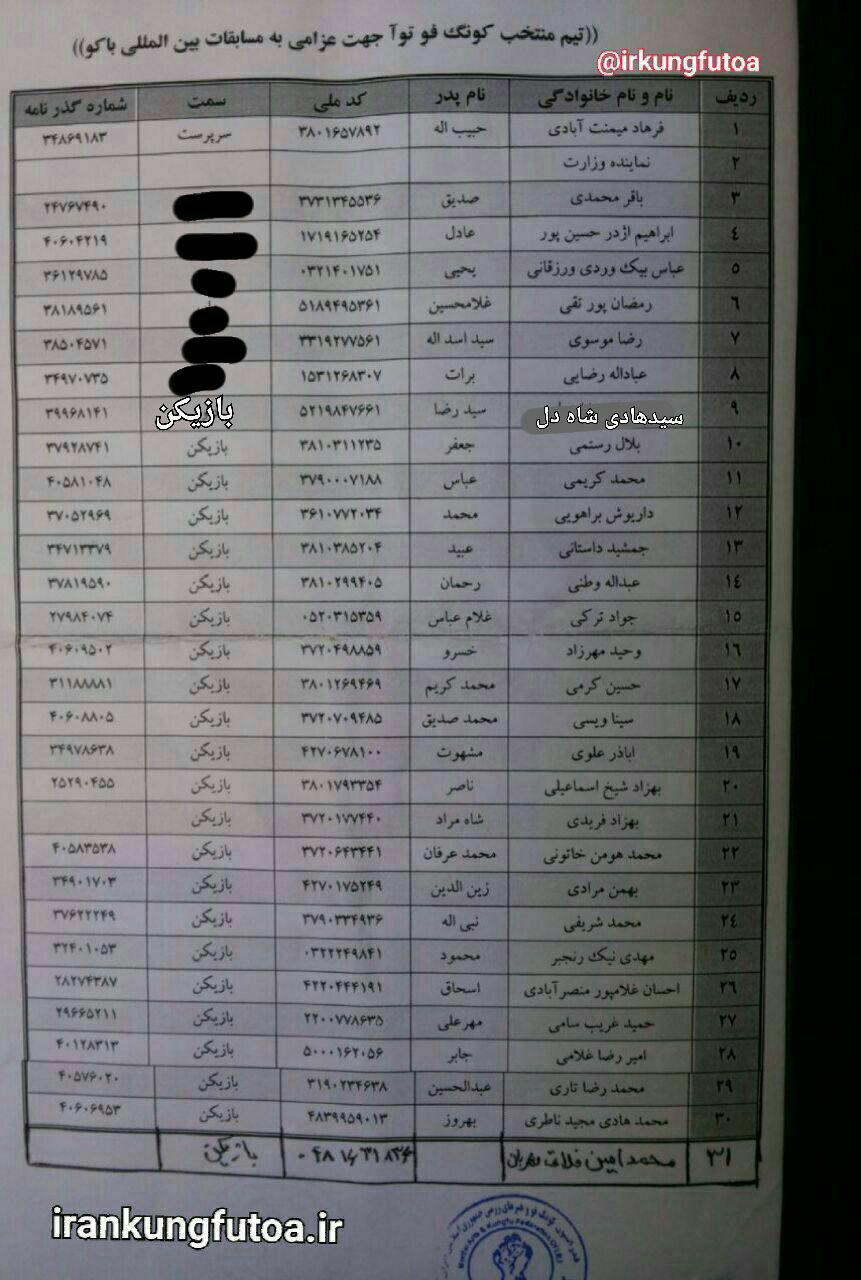 ((تیم منتخب کونگ فو توآ جهت عزامی به مسابقات بین المللی باکو))
@irkungfutoa
ردیف نام و نام خانوادگی نام پدر کد ملی سمت شماره گذر نامه
۱ فرهاد میمنت آبادی حبیب اله ۳۸۰۱۶۵۷۸۹۲ سرپرست ۳۴۸۶۹۱۸۳
۲ نماینده وزارت
۳ باقر محمدی صدیق ۳۷۳۱۳۴۵۵۳۶ ۲۴۷۶۷۴۹۰
۴ ابراهیم اژدر حسین پور عادل ۱۷۱۹۱۶۵۲۵۴ ۴۰۶۰۴۲۱۹
۵ عباس بیک وردی ورزقانی یحیی ۰۳۲۱۴۰۱۷۵۱ ۳۶۱۲۹۷۸۵
۶ رمضان پور تقی غلامحسین ۵۱۸۹۴۹۵۳۶۱ ۳۸۱۸۹۵۶۱
۷ رضا موسوی سید اسد اله ۳۳۱۹۲۷۷۵۶۱ ۳۸۵۰۴۵۷۱
۸ عباداله رضایی برات ۱۵۳۱۲۶۸۳۰۷ ۳۴۹۷۰۷۳۵
۹ سیدهادی شاه دل سید رضا ۵۲۱۹۸۴۷۶۶۱ بازیکن ۳۹۹۶۸۱۴۱
۱۰ بلال رستمی جعفر ۳۸۱۰۳۱۱۲۳۵ بازیکن ۳۷۹۲۸۷۴۱
۱۱ محمد کریمی عباس ۳۷۹۰۰۰۷۱۸۸ بازیکن ۴۰۵۸۱۰۴۸
۱۲ داریوش براهویی محمد ۳۶۱۰۷۷۲۰۳۴ بازیکن ۳۷۰۵۲۹۶۹
۱۳ جمشید داستانی عبید ۳۸۱۰۳۸۵۲۰۴ بازیکن ۳۴۷۱۳۳۷۹
۱۴ عبداله وطنی رحمان ۳۸۱۰۲۹۹۴۰۵ بازیکن ۳۷۸۱۹۵۹۰
۱۵ جواد ترکی غلام عباس ۰۵۲۰۳۱۵۳۵۹ بازیکن ۲۷۹۸۴۰۷۴
۱۶ وحید مهرزاد خسرو ۳۷۲۰۴۹۸۸۵۹ بازیکن ۴۰۶۰۹۵۰۲
۱۷ حسین کرمی محمد کریم ۳۸۰۱۲۶۹۴۶۹ بازیکن ۳۱۱۸۸۸۸۱
۱۸ سینا ویسی محمد صدیق ۳۷۲۰۷۰۹۴۸۵ بازیکن ۴۰۶۰۸۸۰۵
۱۹ اباذر علوی مشهوت ۴۲۷۰۶۷۸۱۰۰ بازیکن ۳۴۹۷۸۶۳۸
۲۰ بهزاد شیخ اسماعیلی ناصر ۳۸۰۱۷۹۳۳۵۴ بازیکن ۲۵۲۹۰۴۵۵
۲۱ بهزاد فریدی شاه مراد ۳۷۲۰۱۷۷۴۴۰ بازیکن
۲۲ محمد هومن خاتونی محمد عرفان ۳۷۲۰۶۴۳۴۴۱ بازیکن ۴۰۵۸۳۵۳۸
۲۳ بهمن مرادی زین الدین ۴۲۷۰۱۷۵۲۴۹ بازیکن ۳۴۹۰۱۷۰۳
۲۴ محمد شریفی نبی اله ۳۷۹۰۳۳۴۹۳۶ بازیکن ۳۷۶۲۲۲۴۹
۲۵ مهدی نیک رنجبر محمود ۰۳۲۲۲۴۹۸۴۱ بازیکن ۳۲۴۰۱۰۵۳
۲۶ احسان غلامپور منصرآبادی اسحاق ۴۲۲۰۴۴۴۱۹۱ بازیکن ۲۸۲۷۴۳۸۷
۲۷ حمید غریب سامی مهرعلی ۲۲۰۰۷۷۸۶۳۵ بازیکن ۲۹۶۶۵۲۱۱
۲۸ امیر رضا غلامی جابر ۵۰۰۰۱۶۲۰۵۶ بازیکن ۴۰۱۲۸۳۱۳
۲۹ محمد رضا تاری عبدالحسین ۳۱۹۰۲۳۴۶۳۸ بازیکن ۴۰۵۷۶۰۲۰
۳۰ محمد هادی مجید ناطری بهروز ۴۸۳۹۹۵۹۰۱۳ بازیکن ۴۰۶۰۶۹۵۳
۳۱ محمد امین فلاق بازیکن
irankungfutoa.ir